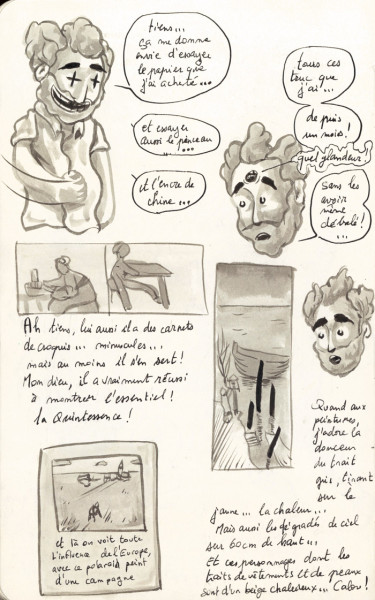 tiens...
ça me donne
envie d'essayer
le papier que
j'ai acheté...
et essayer
aussi le pinceau
...
et l'encre de
chine...
tous ces
truc que
j'ai...
depuis
un mois!
quel glandeur!
sans les
avoir
même
déballé!
...
Ah tiens, lui aussi il a des carnets
de croquis... minuscules...
mais au moins il s'en sert!
Mon dieu, il a vraiment réussi
à montrer l'essentiel!
la Quintessence!
et là on voit toute
l'influence de l'Europe,
avec ce polaroid peint
d'une campagne
Quand aux
peintures,
j'adore la
douceur
du trait
gris, tirant
sur le
jaune... la chaleur...
Mais aussi les dégradés de ciel
sur 60cm de haut...
Et ces personnages dont les
traits de vêtements et de peaux
sont d'un beige chaleureux...